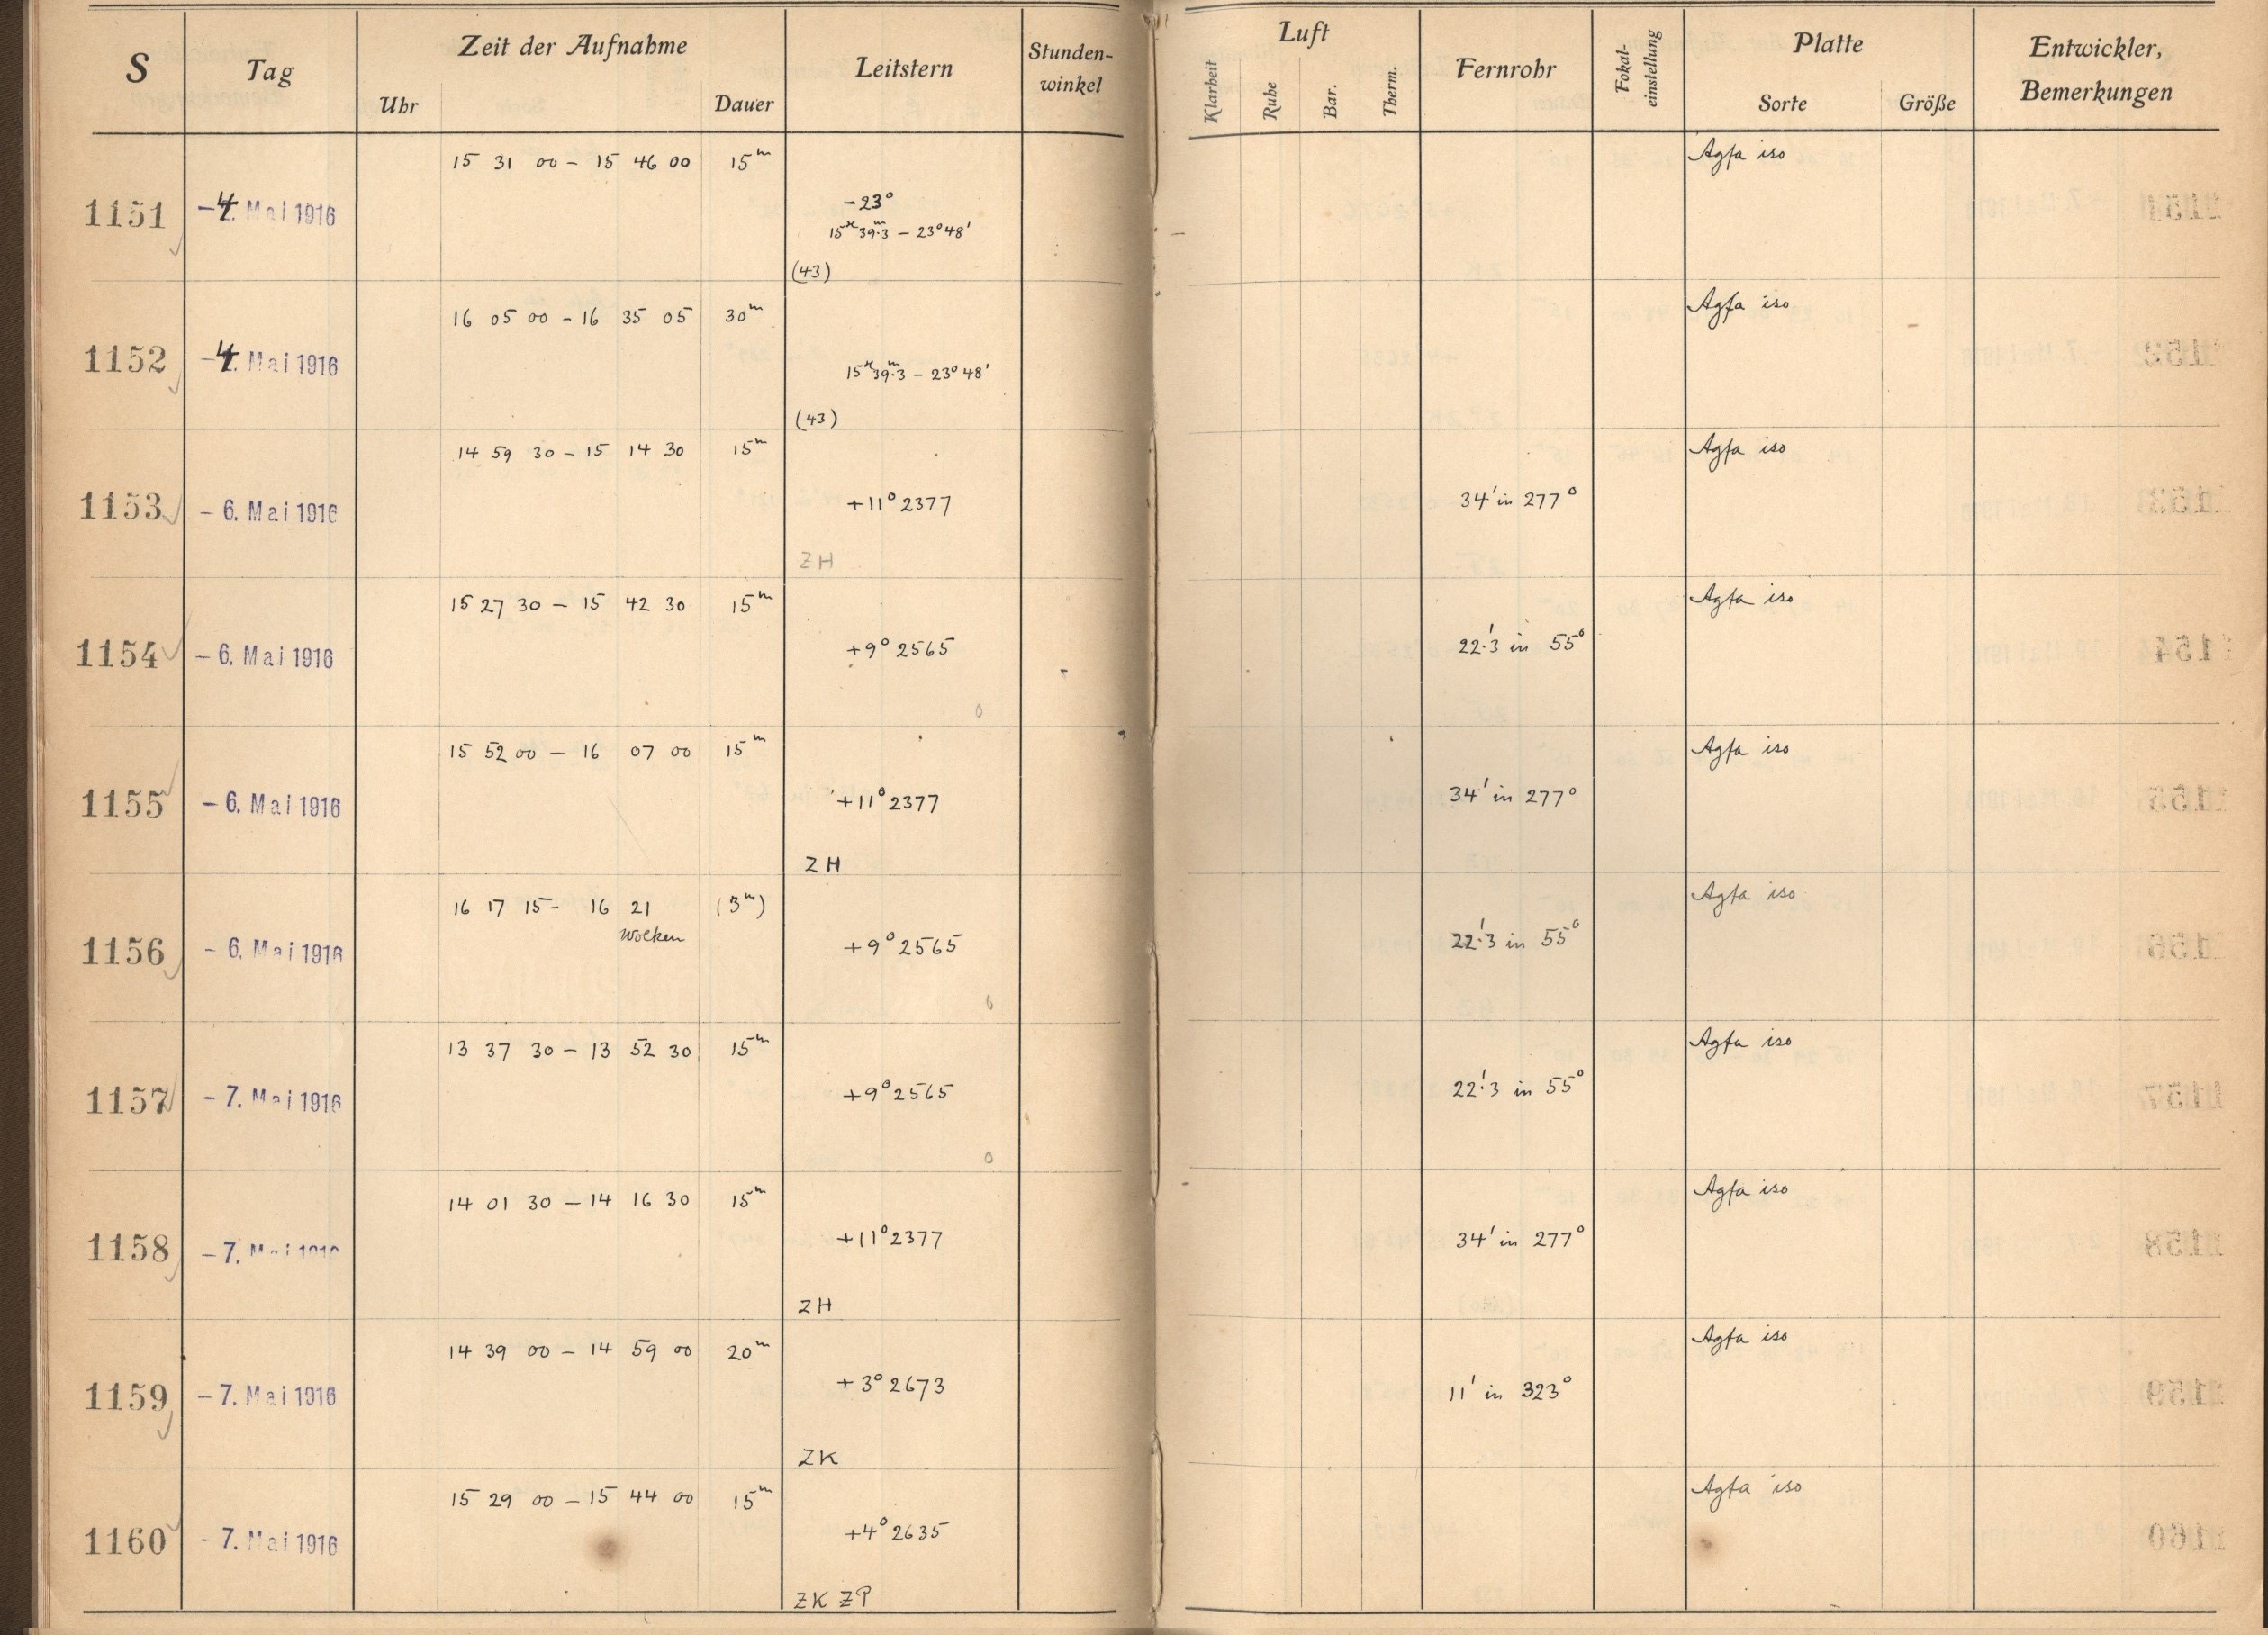 S Tag Zeit der Aufnahme Leitstern Stunden-winkel Luft Fernrohr Fokal-einstellung Platte Entwickler, Bemerkungen
Uhr Dauer Klarheit Ruhe Bar. Therm. Sorte Größe
15 31 00 – 15 46 00 15m Agfa iso
1151 – 4. Mai 1916 – 23°
15h 39m.3 – 23° 48'
(43)
16 05 00 – 16 35 05 30m Agfa iso
1152 – 4. Mai 1916 15h 39m.3 – 23° 48'
(43)
14 59 30 – 15 14 30 15m Agfa iso
1153 – 6. Mai 1916 +11° 2377 34' in 277°
ZH
15 27 30 – 15 42 30 15m Agfa iso
1154 – 6. Mai 1916 +9° 2565 22'.3 in 55°
0
15 52 00 – 16 07 00 15m Agfa iso
1155 – 6. Mai 1916 +11° 2377 34' in 277°
ZH
16 17 15 – 16 21 (3m) Agfa iso
Wolken
1156 – 6. Mai 1916 +9° 2565 22'.3 in 55°
0
13 37 30 – 13 52 30 15m Agfa iso
1157 – 7. Mai 1916 +9° 2565 22'.3 in 55°
0
14 01 30 – 14 16 30 15m Agfa iso
1158 – 7. Mai 1916 +11° 2377 34' in 277°
ZH
14 39 00 – 14 59 00 20m Agfa iso
1159 – 7. Mai 1916 +3° 2673 11' in 323°
ZK
15 29 00 – 15 44 00 15m Agfa iso
1160 – 7. Mai 1916 +4° 2635
ZK ZP